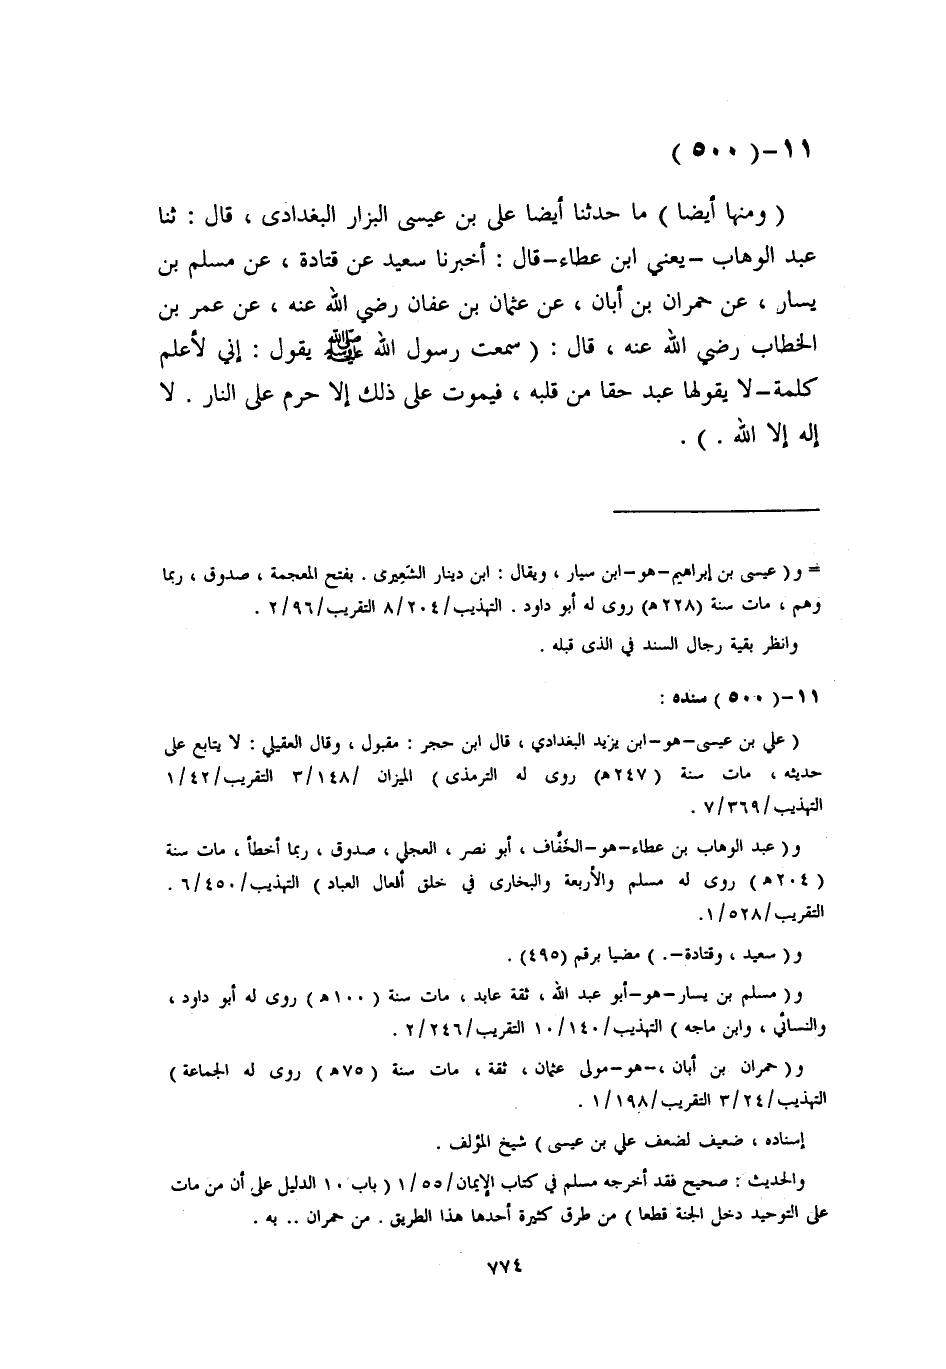 ١١-( ٥٠٠ )
( ومنها أيضا ) ما حدثنا أيضا على بن عيسى البزار البغدادى ، قال : ثنا
عبد الوهاب -يعني ابن عطاء-قال : أخبرنا سعيد عن قتادة ، عن مسلم بن
يسار ، عن حمران بن أبان ، عن عثمان بن عفان رضي الله عنه ، عن عمر بن
الخطاب رضي الله عنه ، قال : ( سمعت رسول الله ﷺ يقول : إني لأعلم
كلمة-لا يقولها عبد حقا من قلبه ، فيموت على ذلك إلا حرم على النار . لا
إله إلا الله . ) .
= و( عيسى بن إبراهيم-هو-ابن سيار ، ويقال : ابن دينار الشّعِيرى . بفتح المعجمة ، صدوق ، ربما
وهم ، مات سنة (٢٢٨ه) روى له أبو داود . التهذيب/٨/٢٠٤ التقريب/٢/٩٦ .
وانظر بقية رجال السند في الذى قبله .
١١-( ٥٠٠ ) سنده :
( علي بن عيسى-هو-ابن يزيد البغدادي ، قال ابن حجر : مقبول ، وقال العقيلي : لا يتابع على
حديثه ، مات سنة ( ٢٤٧ه) روى له الترمذى ) الميزان /٣/١٤٨ التقريب/١/٤٢
التهذيب/٧/٣٦٩ .
و( عبد الوهاب بن عطاء-هو-الخفَّاف ، أبو نصر ، العجلي ، صدوق ، ربما أخطأ ، مات سنة
( ٢٠٤ه ) روى له مسلم والأربعة والبخارى في خلق أفعال العباد ) التهذيب/٦/٤٥٠ .
التقريب/١/٥٢٨.
و( سعيد ، وقتادة-. ) مضيا برقم (٤٩٥) .
و( مسلم بن يسار-هو-أبو عبد الله ، ثقة عابد ، مات سنة ( ١٠٠ه ) روى له أبو داود ،
والنسائي ، وابن ماجه ) التهذيب/١٠/١٤٠ التقريب/٢/٢٤٦ .
و( حمران بن أبان ،-هو-مولى عثمان ، ثقة ، مات سنة ( ٧٥ه ) روى له الجماعة )
التهذيب/٣/٢٤ التقريب/١/١٩٨ .
إسناده ، ضعيف لضعف علي بن عيسى ) شيخ المؤلف .
والحديث : صحيح فقد أخرجه مسلم في كتاب الإيمان/١/٥٥ ( باب ١٠ الدليل على أن من مات
على التوحيد دخل الجنة قطعا ) من طرق كثيرة أحدها هذا الطريق . من حمران .. به .
٧٧٤